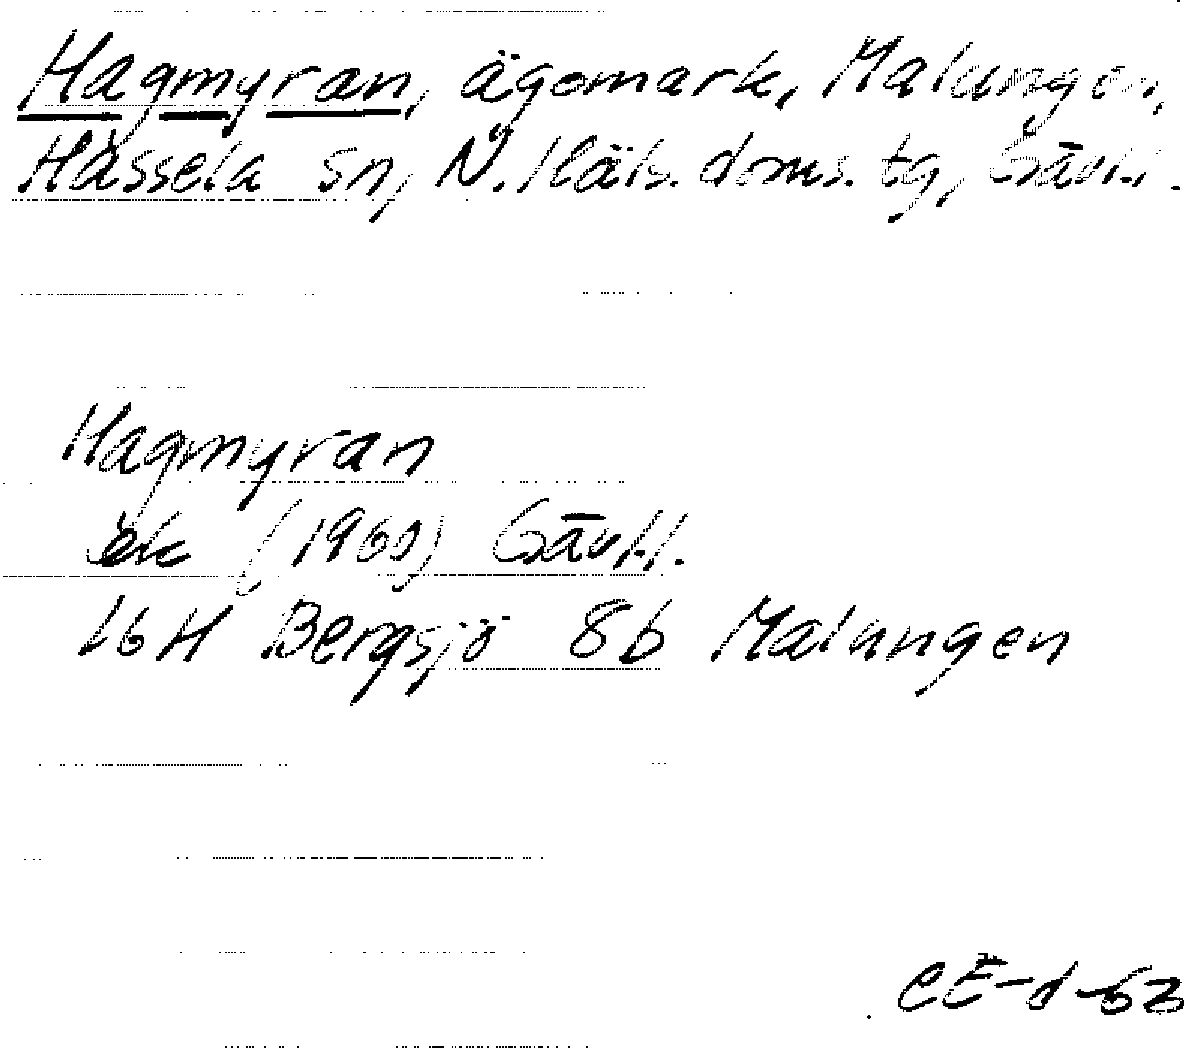 Hagmyran, ägomark, Malungen,
Hassela sn, N. Häls. doms. tg, Gävl.l.
Hagmyran
ek (1960) Gävl.l.
16H Bergsjö 8b Malungen
CE-d-63